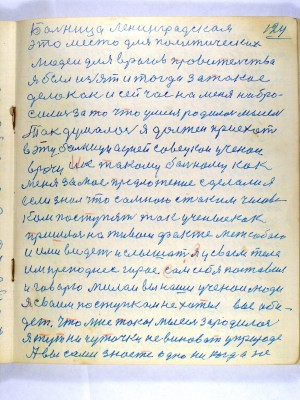 124
Больница Ленинградская
это место для политических
людей для врагов провительства
я был изят и тогда за такое
дело как и сейчас на меня набро
сились за то что у меня родилась мысель
Так думалося я должен приехат
в эту больницу а в ней совецкии ученаи
врачи и к такому больному как
меня за мое предложение сделали я
если знал что со мною с таким челове
ком поступят так ученые как
пришлос на живом факте
и или видет и слышат я у своем теле
им преподнес героя, сам себя поставил
и говорю милаи вы наши ученаи люди
я своим поступком не хотел вас оби
дет. Что мне такая мысел зародилас
я тут ни чуточки не виноват у природе
А вы сами знаете одно никогда не